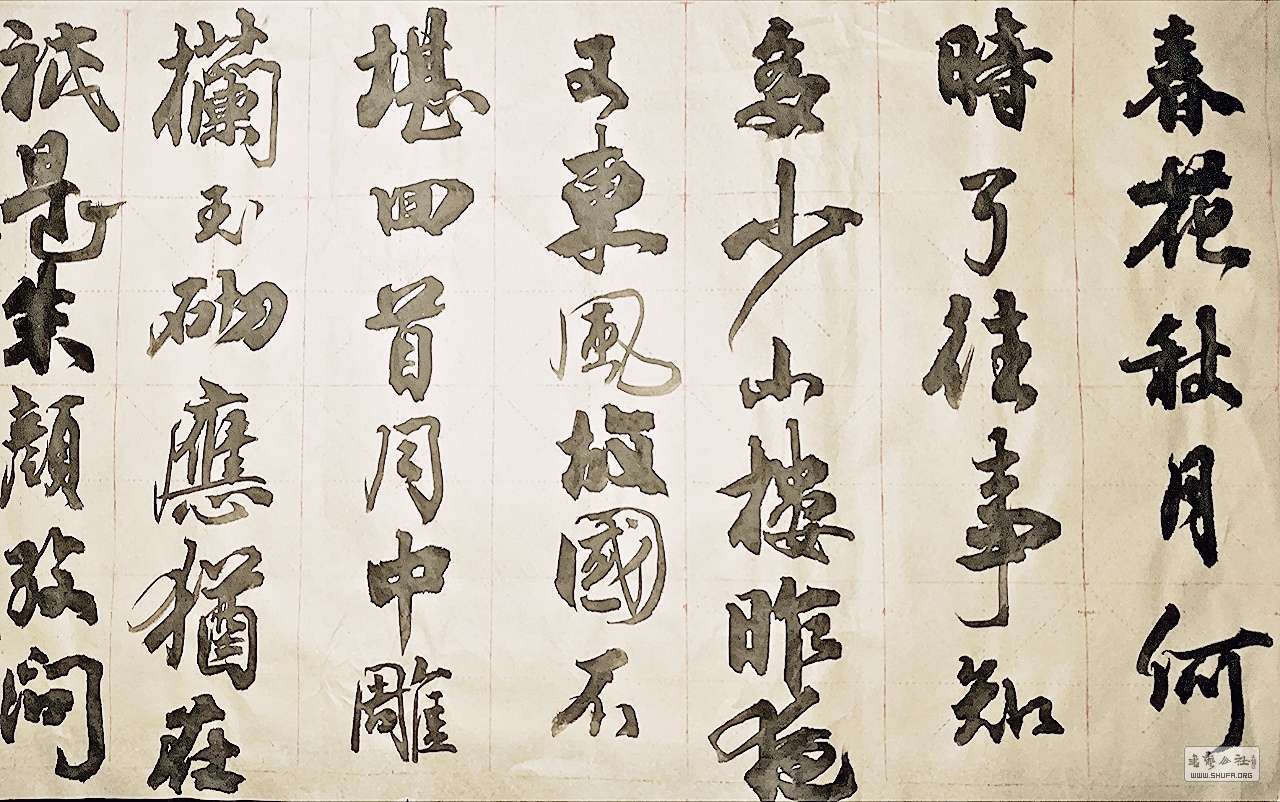 春花秋月何
時了往事知
多少小樓昨夜
又東風故國不
堪回首月中雕
欄玉砌應猶在
祗是朱顏改問
书艺公社
WWW.SHUFA.ORG